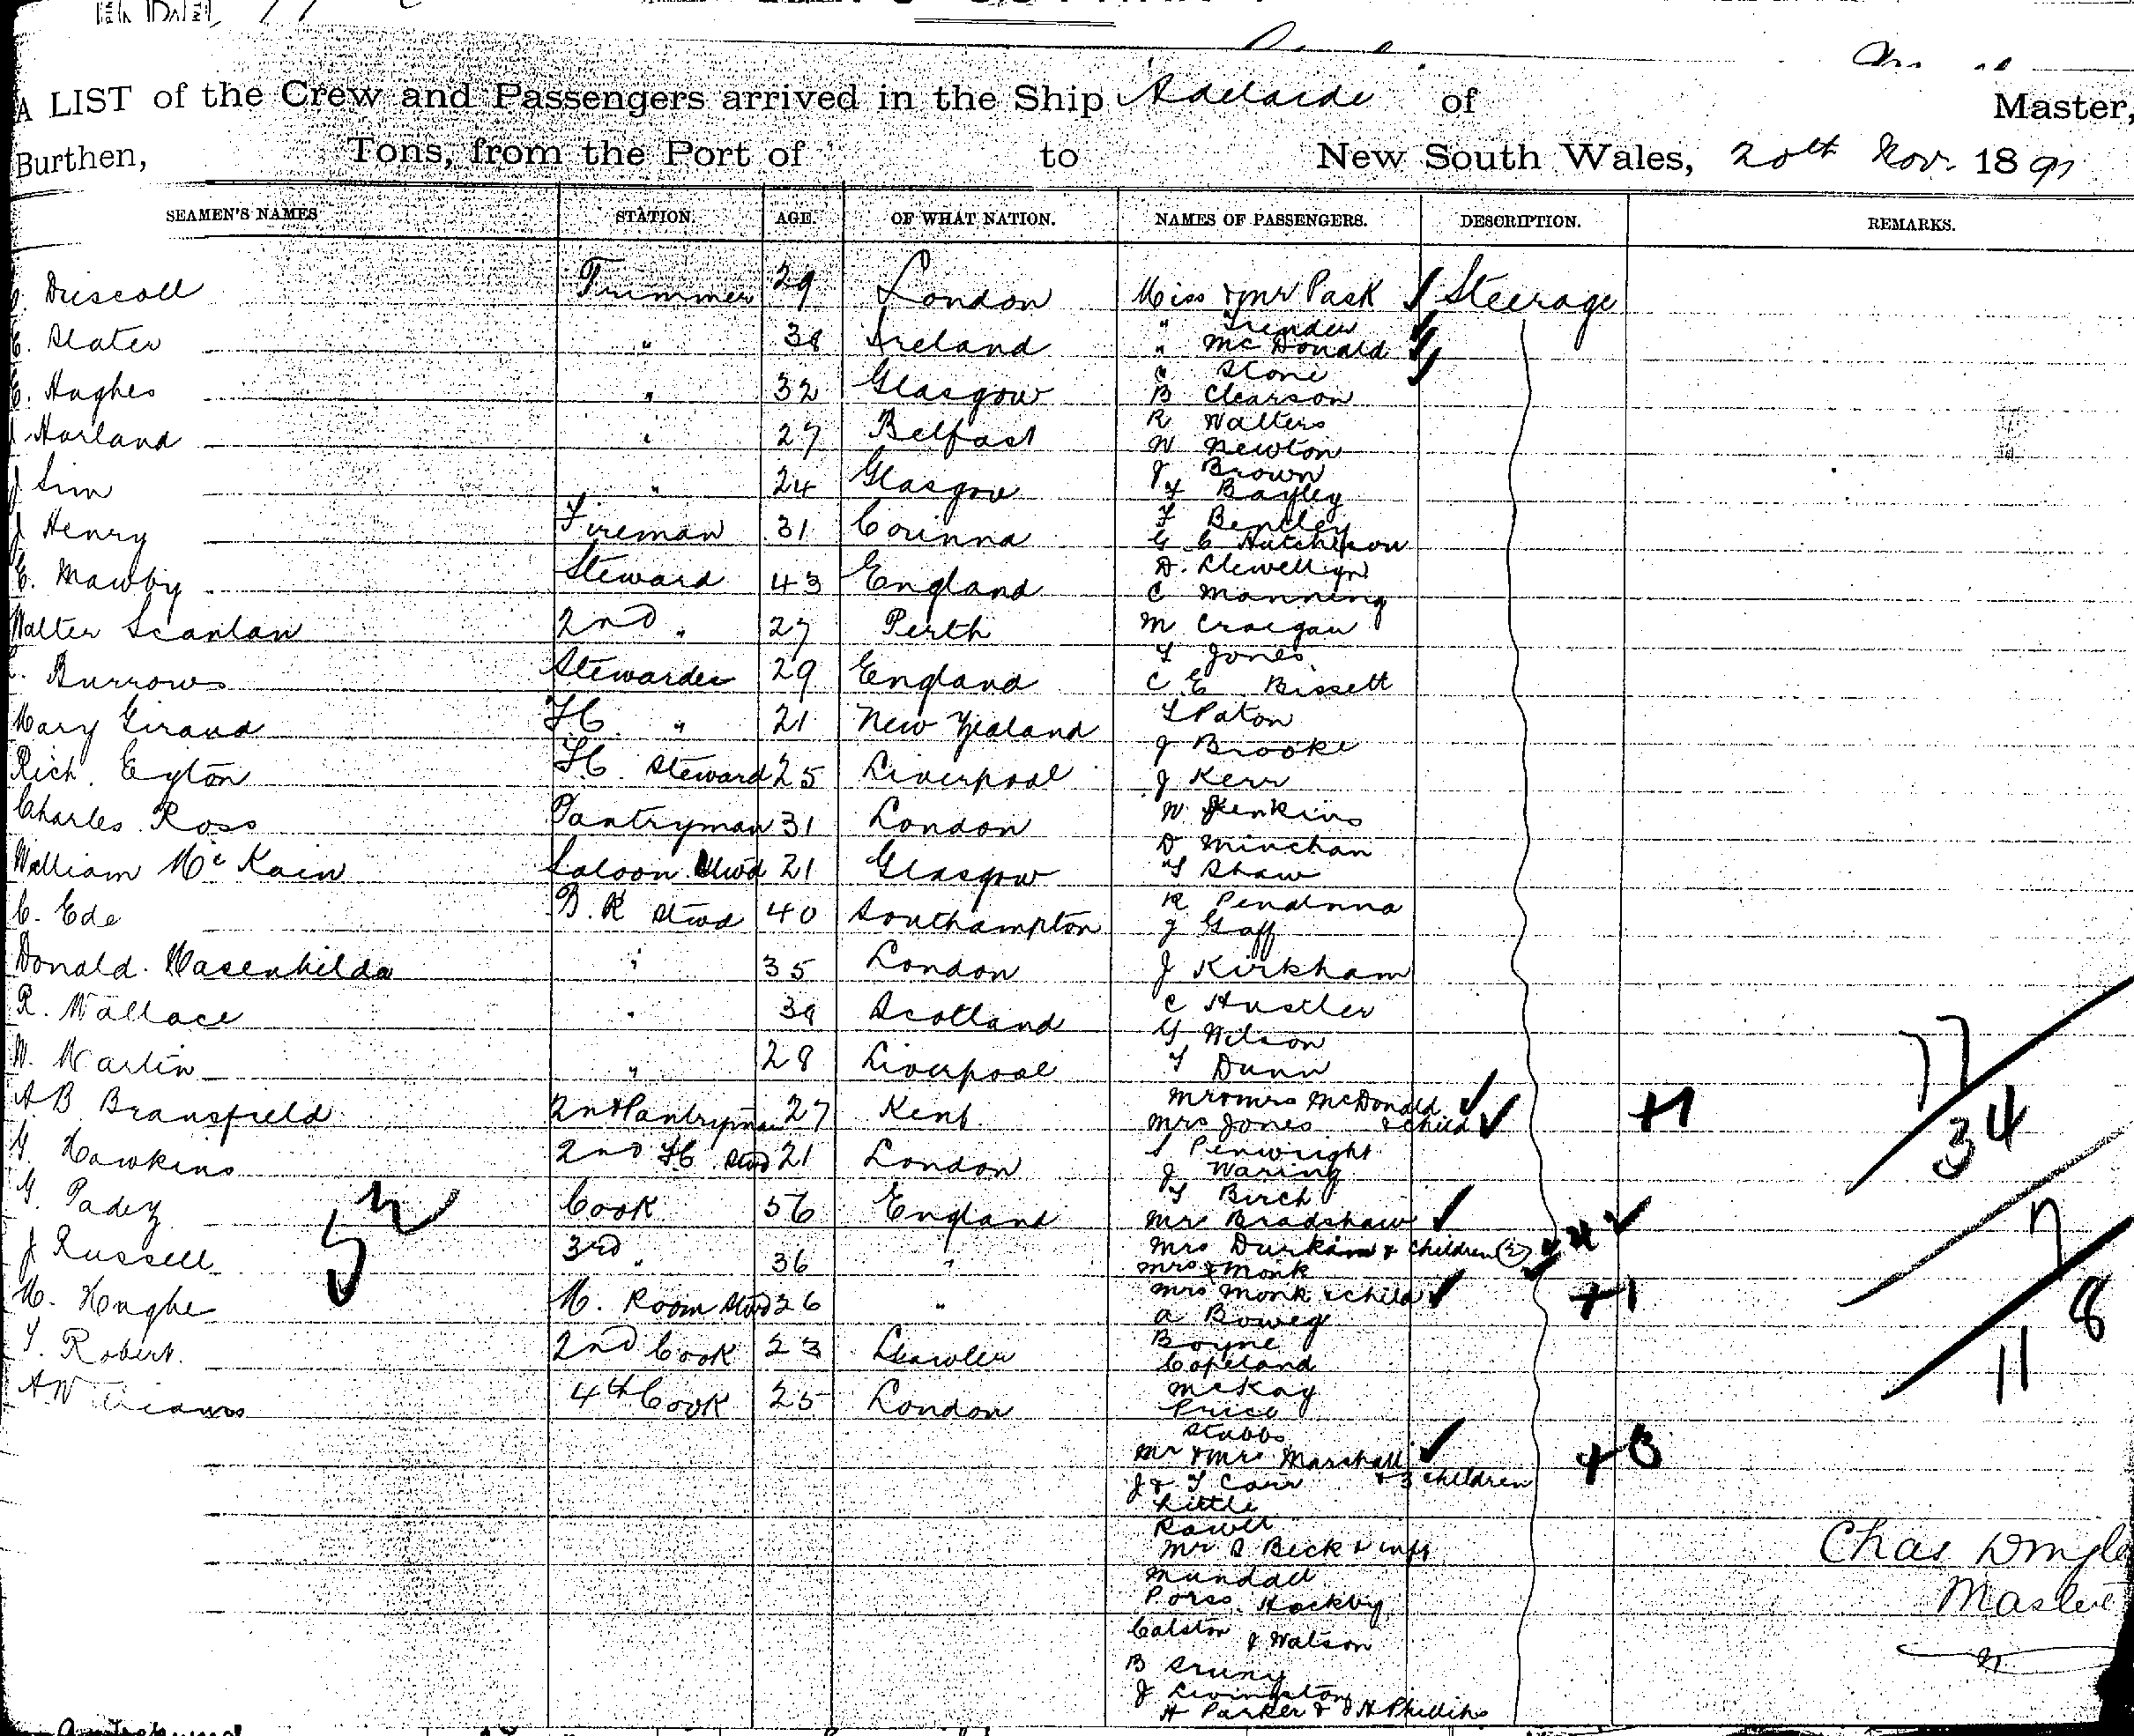 A LIST of the Crew and Passengers arrived in the Ship Adelaide of Master,
Burthen, Tons, from the Port of to New South Wales, 20th Nov. 1891
SEAMEN'S NAMES STATION. AGE. OF WHAT NATION. NAMES OF PASSENGERS. DESCRIPTION. REMARKS.
Driscoll Trimmer 29 London
E. Slater " 38 Ireland
Hughes " 32 Glasgow
Harland " 27 Belfast
J Sim " 24 Glasgow
J Henry Fireman 31 Corinna
E. Mawby Steward 43 England
Walter Scanlan 2nd " 27 Perth
Burrows Stewardess 29 England
Mary Giraud " 21 New Zealand
Rich. Eyton Steward 25 Liverpool
Charles Ross Pantryman 31 London
William McKain Saloon Stwd 21 Glasgow
C. Ede B. R Stwd 40 Southampton
Donald " 35 London
R. Wallace " 39 Scotland
W. Martin " 28 Liverpool
A B Bransfield 2nd Pantryman 27 Kent
G. Hawkins 2nd Stwd 21 London
G. Cook 56 England
J Russell 3rd " 36 "
M. M. Room Stwd 26 "
T. Robert 2nd Cook 23 Gawler
A W 4th Cook 25 London
Miss & Mr Pask Steerage
" Trender
" McDonald
Stone
B Clearson
R Walters
W Newton
J Brown
F Bayley
F Bentley
G C Hutchison
D. Llewellyn
C Manning
M Craigan
F Jones
C. E. Bissett
T Paton
J Brooke
J Kerr
W Jenkins
D Minchan
T Shaw
R
J Gaff
J Kirkham
C Hustler
G Wilson
T Dunn
Mr & Mrs McDonald
Mrs Jones & child +1
S Penwright
J Waring
T Birch
Mr Bradshaw
Mrs Durkin & children (2)
Mrs Monk
Mrs Monk & child +1
A
Boyne
Copeland
McKay
Price
Stubbs
Mr & Mrs Marshall
& 3 children +3
J & T Carr
Little
Rowell
Mr S Beck & wife
Mundall
Hackby
Colston & Watson
B
J Livingston
H Parker & H Phillips
77
34
7
8
11
Chas
Master